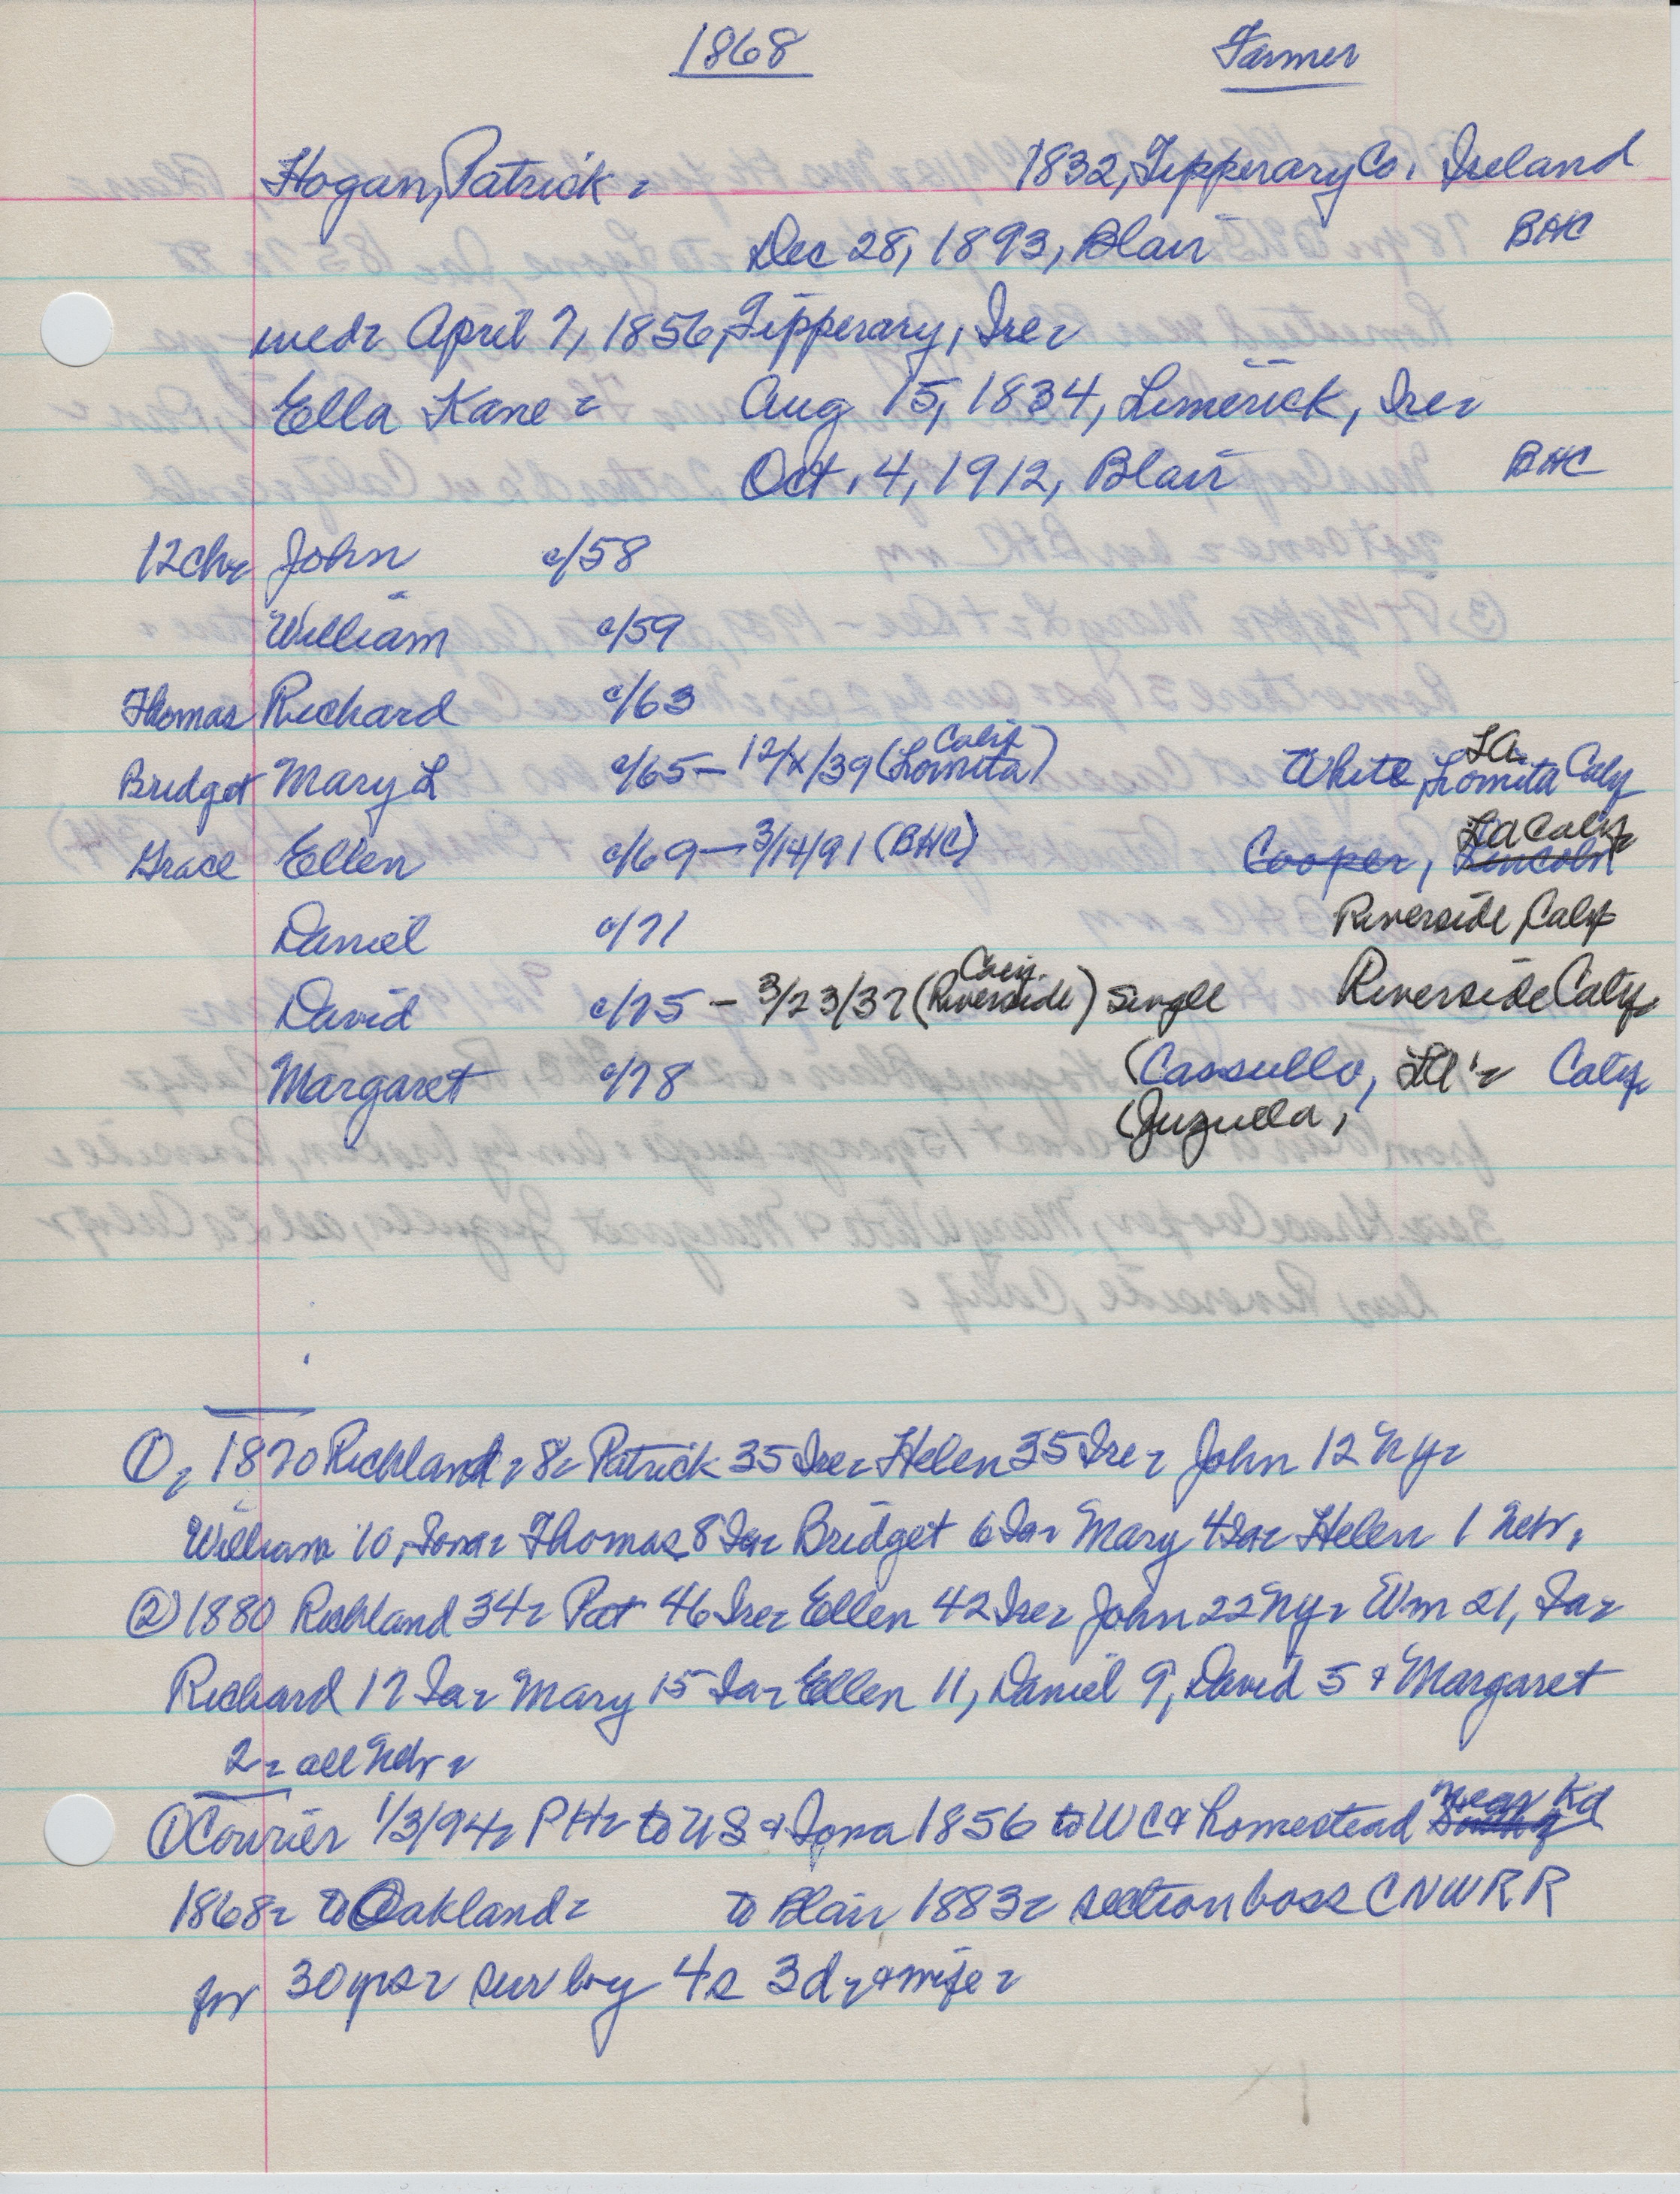 1868 Farmer
Hogan, Patrick. 1832, Tipperary Co. Ireland
Dec 28, 1893, Blair BHC
med. April 7, 1856, Tipperary, Ire.
Ella Kane. Aug 15, 1834, Limerick, Ire.
Oct. 4, 1912, Blair BHC
12 chr John c/58
William c/59
Thomas Richard c/63
Bridget Mary L c/65 – 12/x/39 (Lomita Calif) White, Lomita LA Calif
Grace Ellen c/69 – 3/14/91 (BHC) Cooper, Lincoln LA Calif
Daniel c/71 Riverside, Calif
David c/75 – 3/23/37 (Riverside Calif.) single Riverside Calif
Margaret c/78 (Cassullo, LA. Calif
(Juzulla,
① 1870 Richland. 8. Patrick 35 Ire. Helen 35 Ire. John 12 NY.
William 10, Iowa. Thomas 8 Ia. Bridget 6 Ia. Mary 4 Ia. Helen 1 Nebr.
② 1880 Richland 34. Pat 46 Ire. Ellen 42 Ire. John 22 NY. Wm 21, Ia.
Richard 17 Ia. Mary 15 Ia. Ellen 11, Daniel 9, David 5 & Margaret
2. all Nebr.
① Courier 1/3/94. PH. to US & Iowa 1856 to WC & homestead near Kd
1868. to Oakland. to Blair 1883. section boss CNWRR
for 30 yrs. sur by 4s 3d. & wife.